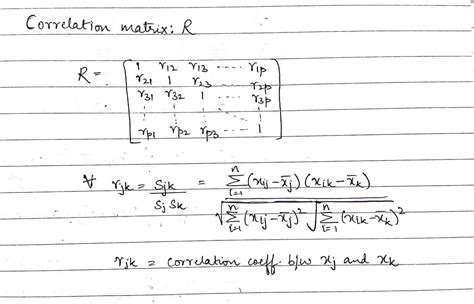 Correlation matrix: R
R = [ 1 r12 r13 ----- r1p
r21 1 r23 ----- r2p
r31 r32 1 ----- r3p
rp1 rp2 rp3 ----- 1 ]
∀ rjk = Sjk / Sj Sk = Σ_{i=1}^{n} (xij - x̄j) (xik - x̄k) / √Σ_{i=1}^{n} (xij - x̄j)² √Σ_{i=1}^{n} (xik - x̄k)²
rjk = correlation coeff. b/w xj and xk